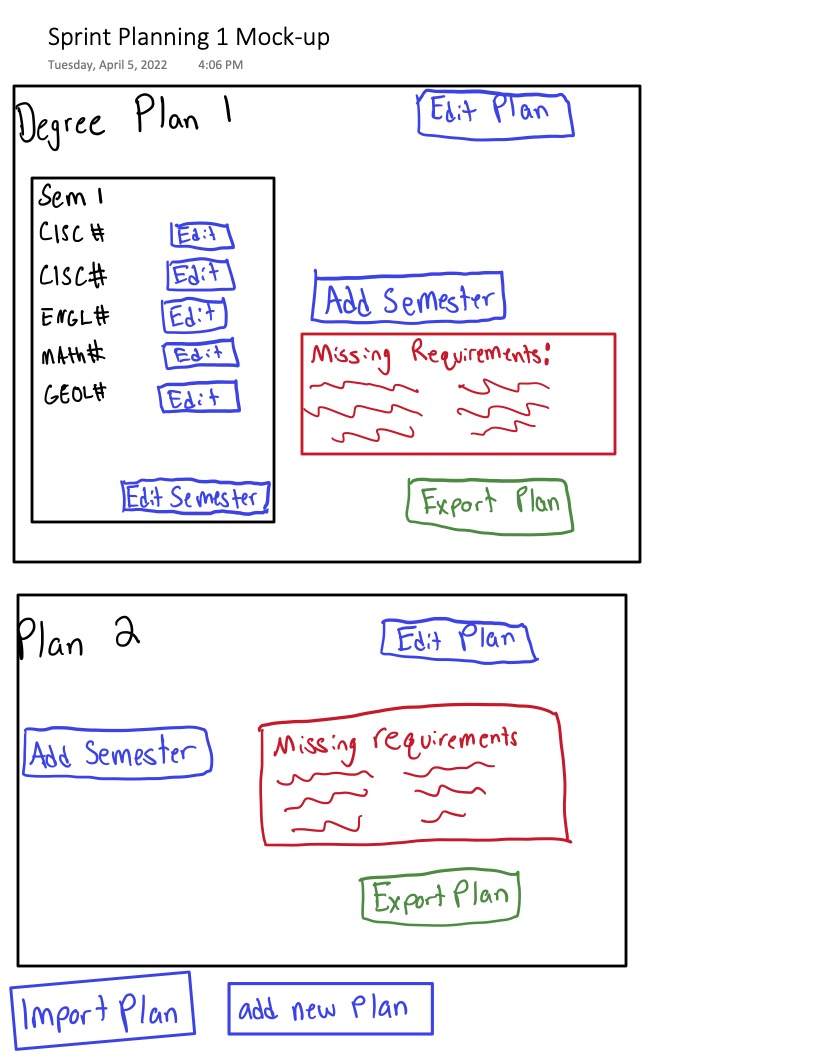 Sprint Planning 1 Mock-up
Tuesday, April 5, 2022 4:06 PM
Degree Plan 1
Edit Plan
Sem 1
CISC # Edit
CISC# Edit
ENGL# Edit
MAth# Edit
GEOL# Edit
Edit Semester
Add Semester
Missing Requirements:
Export Plan
Plan 2
Edit Plan
Add Semester
Missing requirements
Export Plan
Import Plan
add new Plan